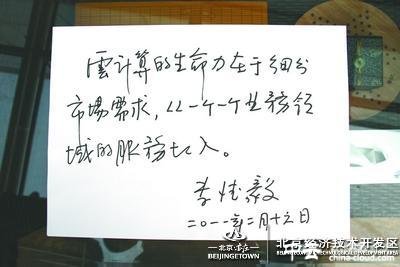 雲计算的生命力在于细分
市場需求，从一个个业務领
域的服務切入。
李德毅
二〇一一年二月十六日
北京·亦庄
BEIJINGTOWN
北京经济技术开发区
china-cloud.com